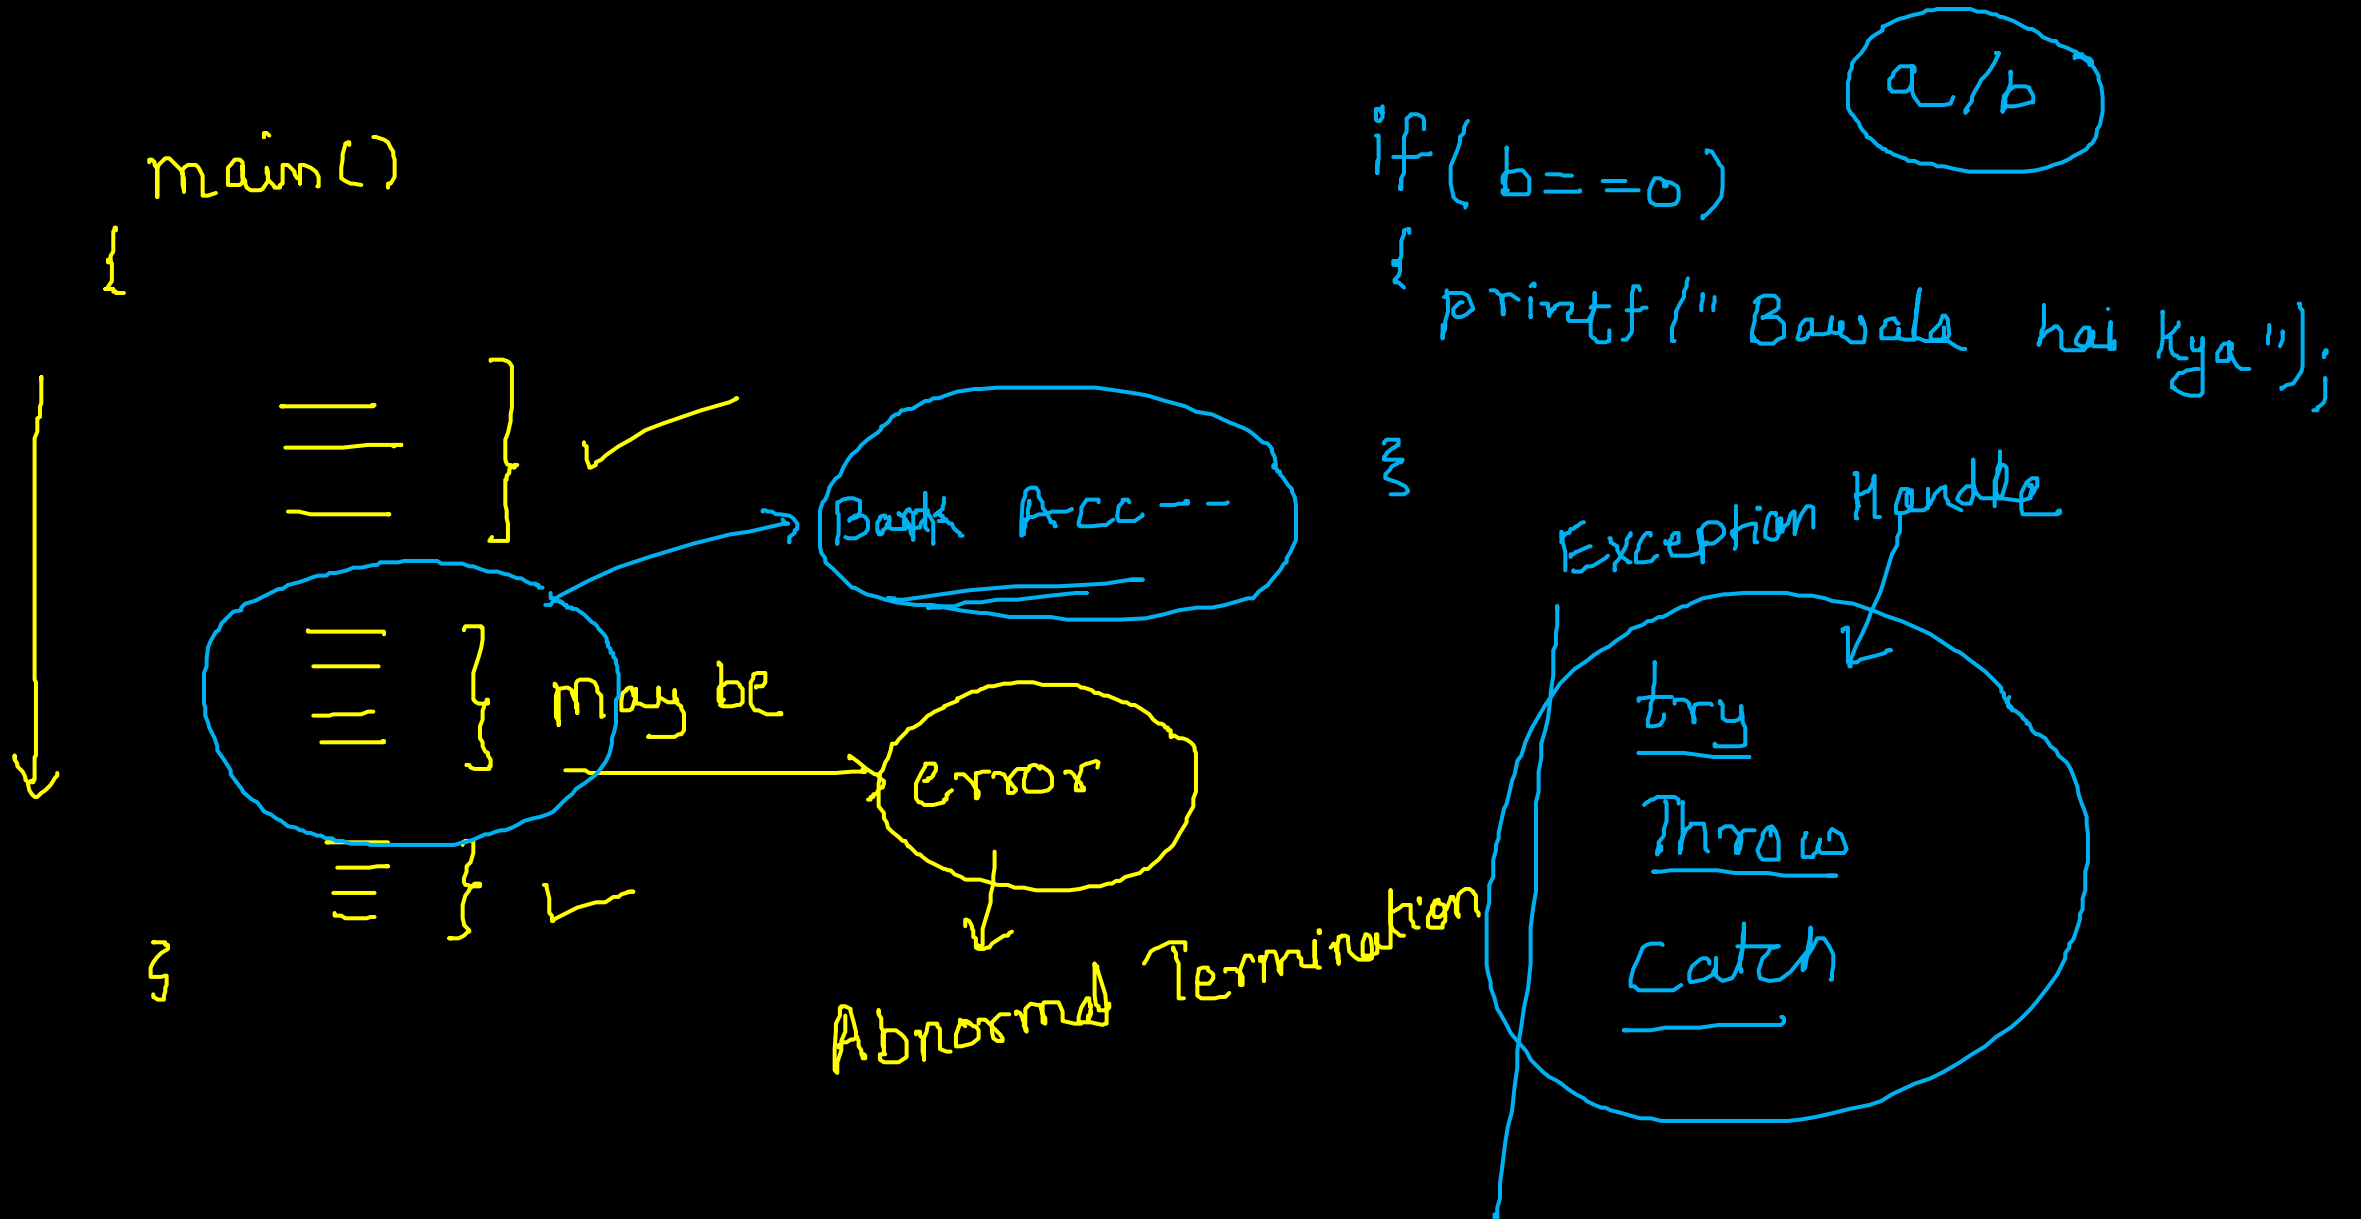 main()
{
✓
may be
error
Abnormal Termination
✓
}
Bank Acc---
a/b
if(b==0)
{
printf("Bawala hai kya");
}
Exception Handle
try
Throw
Catch